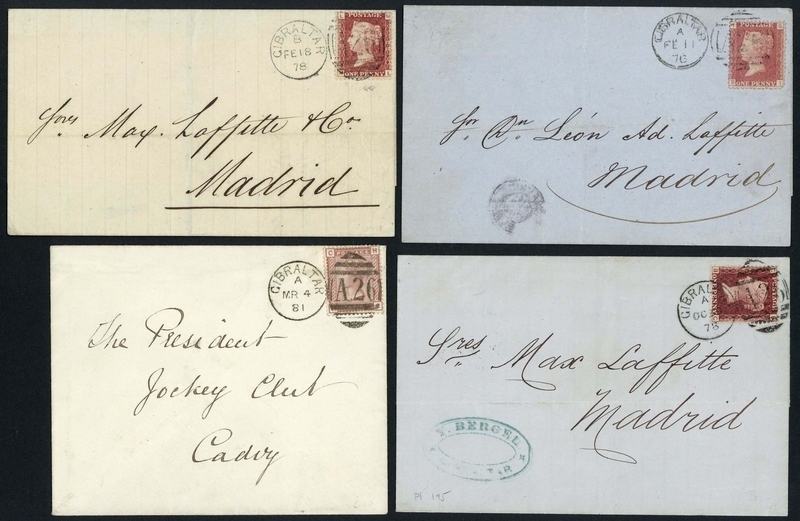 GIBRALTAR
B
FE 18
78
POSTAGE
ONE PENNY
Sores Max. Laffitte & Co.
Madrid
GIBRALTAR
A
FE 11
76
POSTAGE
ONE PENNY
Sr Dn León Ad. Laffitte
Madrid
GIBRALTAR
A
MR 4
81
C H
A26
The President
Jockey Club
Cadiz
GIBRALTAR
A
OC
78
A26
Sres Max Laffitte
Madrid
BERGEL